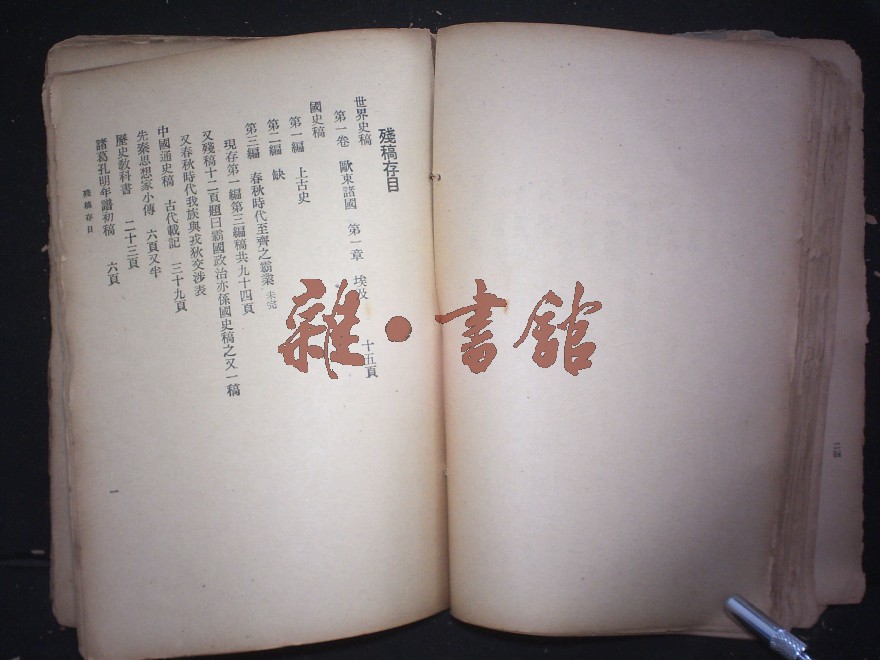 殘稿存目
世界史稿
第一卷　歐東諸國　第一章　埃及　十五頁
國史稿
第一編　上古史
第二編　缺
第三編　春秋時代至齊之霸業 未完
現存第一編第三編稿共九十四頁
又殘稿十二頁題曰霸國政治亦係國史稿之又一稿
又春秋時代我族與戎狄交涉表
中國通史稿　古代載記　三十九頁
先秦思想家小傳　六頁又半
歷史教科書　二十三頁
諸葛孔明年譜初稿　六頁
殘稿存目
一
雜·書館